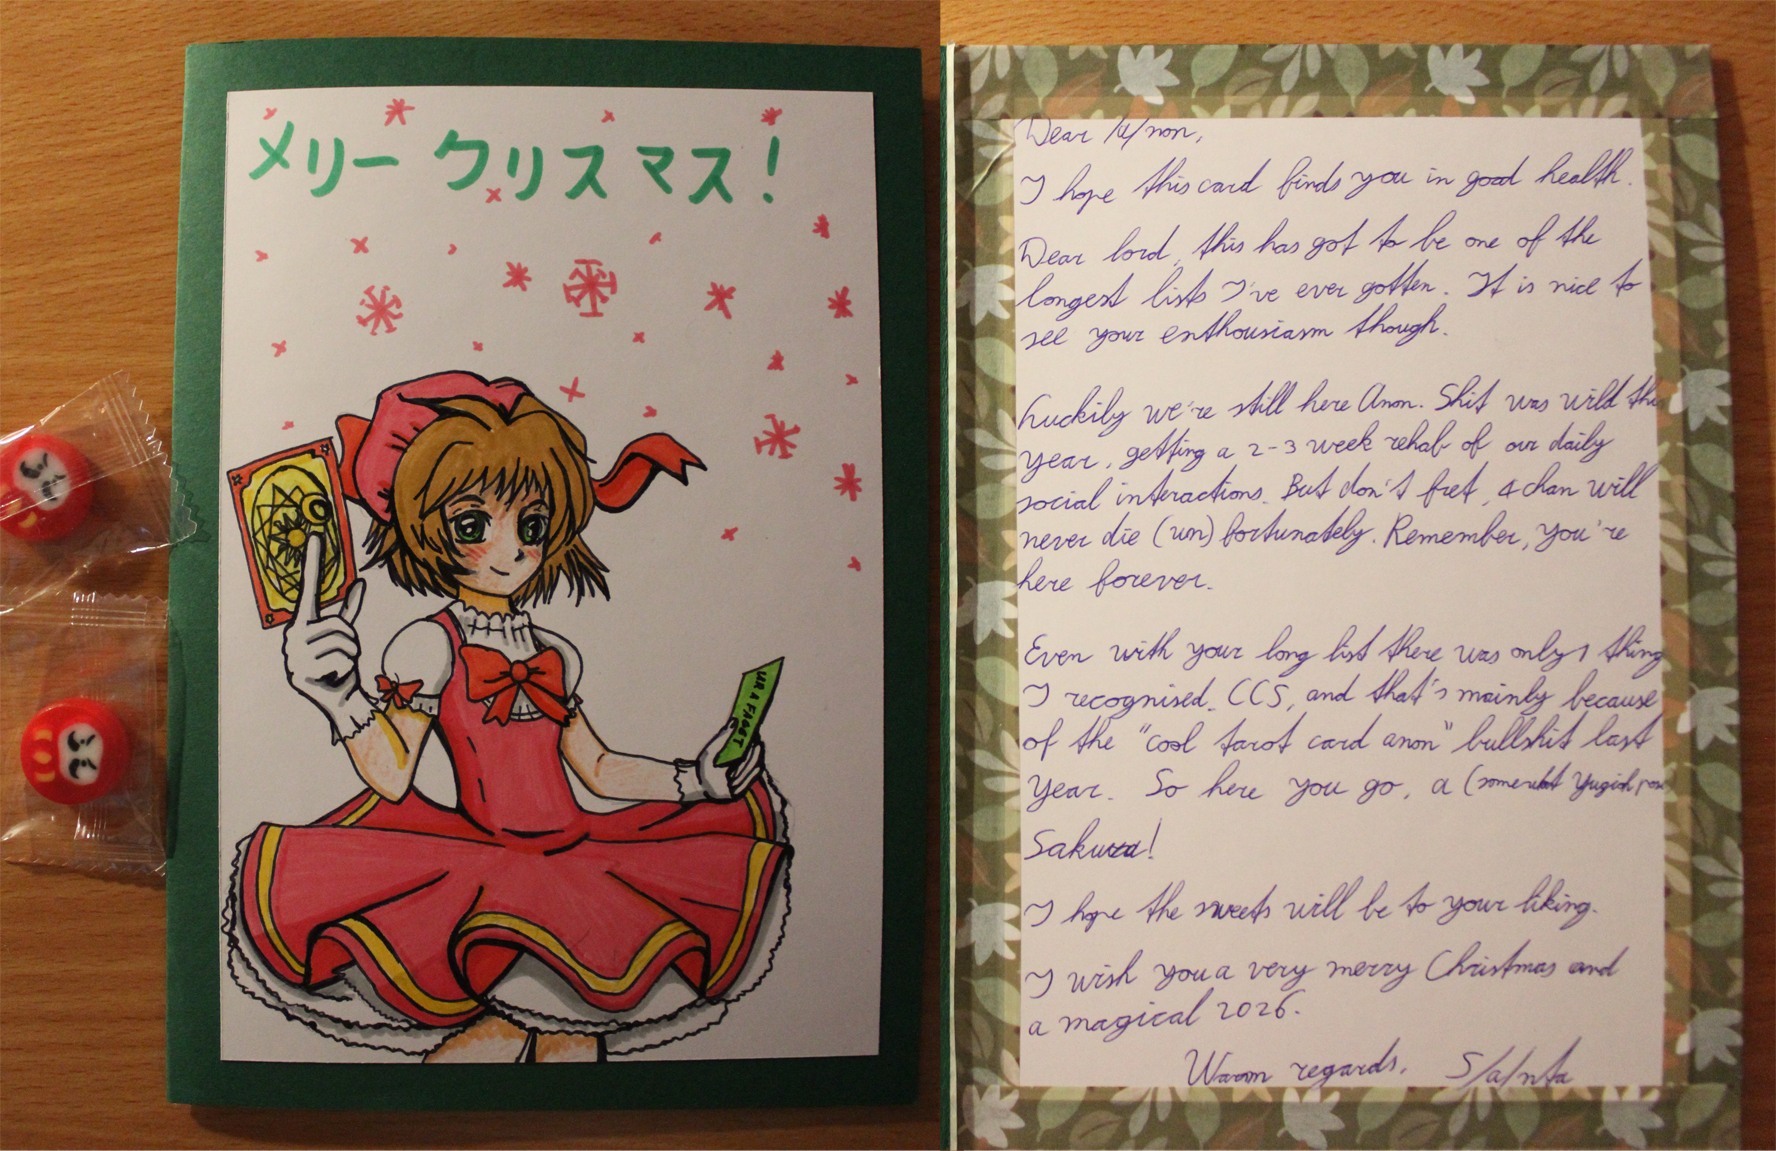 メリー クリスマス!
UR A FAGET
Dear /a/non,
I hope this card finds you in good health.
Dear lord, this has got to be one of the
longest lists I've ever gotten. It is nice to
see your enthusiasm though.
Luckily we're still here Anon. Shit was wild this
year, getting a 2-3 week rehab of our daily
social interactions. But don't fret, 4chan will
never die (un)fortunately. Remember, you're
here forever.
Even with your long list there was only 1 thing
I recognised. CCS, and that's mainly because
of the "cool tarot card anon" bullshit last
year. So here you go, a (somewhat Yugioh pose
Sakura!
I hope the sweets will be to your liking.
I wish you a very merry Christmas and
a magical 2026.
Warm regards, S/a/nta